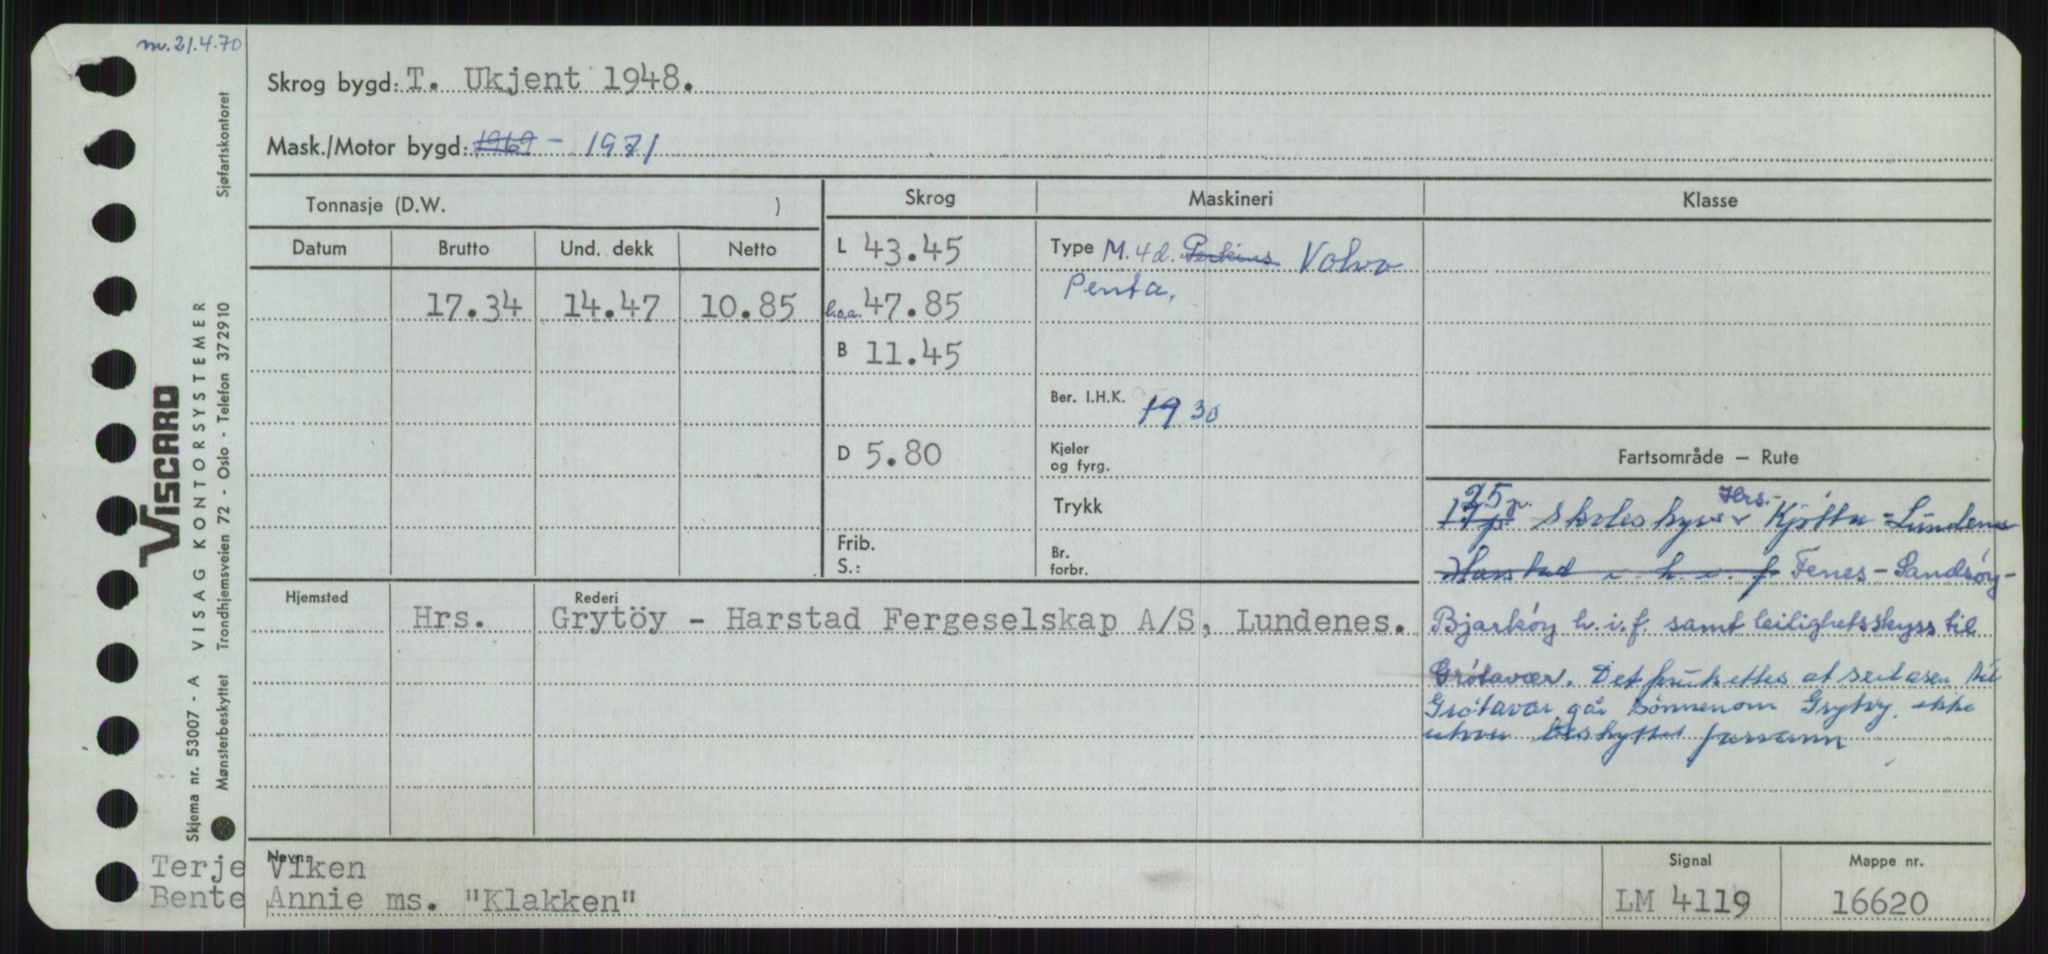 m. 21.4.70
Skrog bygd: T. Ukjent 1948.
Mask./Motor bygd: 1969 - 1971
Tonnasje (D.W. )
Skrog
Maskineri
Klasse
Datum Brutto Und. dekk Netto
17.34 14.47 10.85
L 43.45
l.o.a. 47.85
B 11.45
D 5.80
Frib.
S.:
Type M. 4d. Perkins Volvo
Penta.
Ber. I.H.K. 19 30
Kjeler
og fyrg.
Trykk
Br.
forbr.
Fartsområde — Rute
25 p. Hrs.-
17 p. Skoleskyss Kjøtta - Lundenes
Harstad i h. i. f Fenes - Sandsöy -
Bjarköy h. i. f. samt leilighetsskyss til
Grötavær. Det til
Grötavær går Grytöy, ikke
Hjemsted
Rederi
Hrs. Grytöy - Harstad Fergeselskap A/S, Lundenes.
Navn:
Terje Viken
Bente Annie ms. "Klakken"
Signal
LM 4119
Mappe nr.
16620
VISCARD
VISAG KONTORSYSTEMER
Skjema nr. 53007 - A
Mønsterbeskyttet Trondhjemsveien 72 - Oslo - Telefon 372910
Sjøfartskontoret